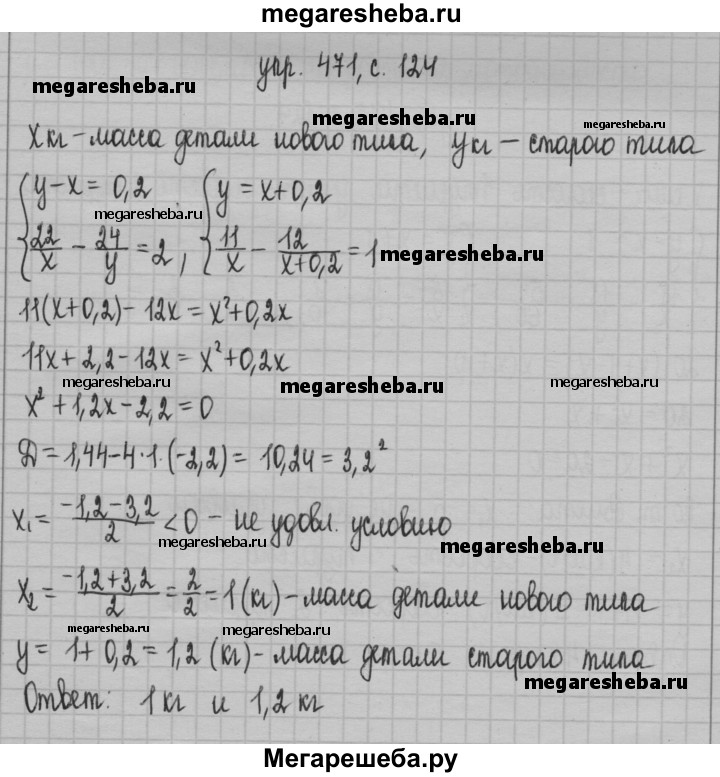 megaresheba.ru
упр. 471, с. 124
megaresheba.ru
megaresheba.ru
megaresheba.ru
X кг – масса детали нового типа, y кг – старого типа
{y – x = 0,2 {y = x + 0,2
megaresheba.ru
{22/x – 24/y = 2, {11/x – 12/(x+0,2) = 1
megaresheba.ru
11(x+0,2) – 12x = x²+0,2x
11x + 2,2 – 12x = x²+0,2x
megaresheba.ru
megaresheba.ru
megaresheba.ru
x² + 1,2x – 2,2 = 0
D = 1,44 – 4·1·(–2,2) = 10,24 = 3,2²
x₁ = (–1,2 – 3,2)/2 < 0 – не удовл. условию
megaresheba.ru
megaresheba.ru
x₂ = (–1,2 + 3,2)/2 = 2/2 = 1 (кг) – масса детали нового типа
megaresheba.ru
megaresheba.ru
y = 1 + 0,2 = 1,2 (кг) – масса детали старого типа
megaresheba.ru
Ответ: 1 кг и 1,2 кг
Мегарешеба.ру